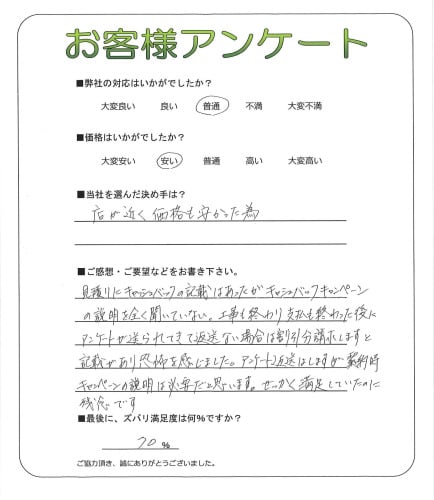 お客様アンケート
■弊社の対応はいかがでしたか？
大変良い 良い 普通 不満 大変不満
■価格はいかがでしたか？
大変安い 安い 普通 高い 大変高い
■当社を選んだ決め手は？
店が近く価格も安かった為
■ご感想・ご要望などをお書き下さい。
見積りにキャッシュバックの記載はあったがキャッシュバックキャンペーン
の説明を全く聞いていない。工事も終わり支払も終わった後に
アンケートが送られてきて返送ない場合は割引分請求しますと
記載があり恐怖を感じました。アンケート返送はしますが契約時
キャンペーンの説明は必要だと思います。せっかく満足していたのに
残念です
■最後に、ズバリ満足度は何%ですか？
70 %
ご協力頂き、誠にありがとうございました。